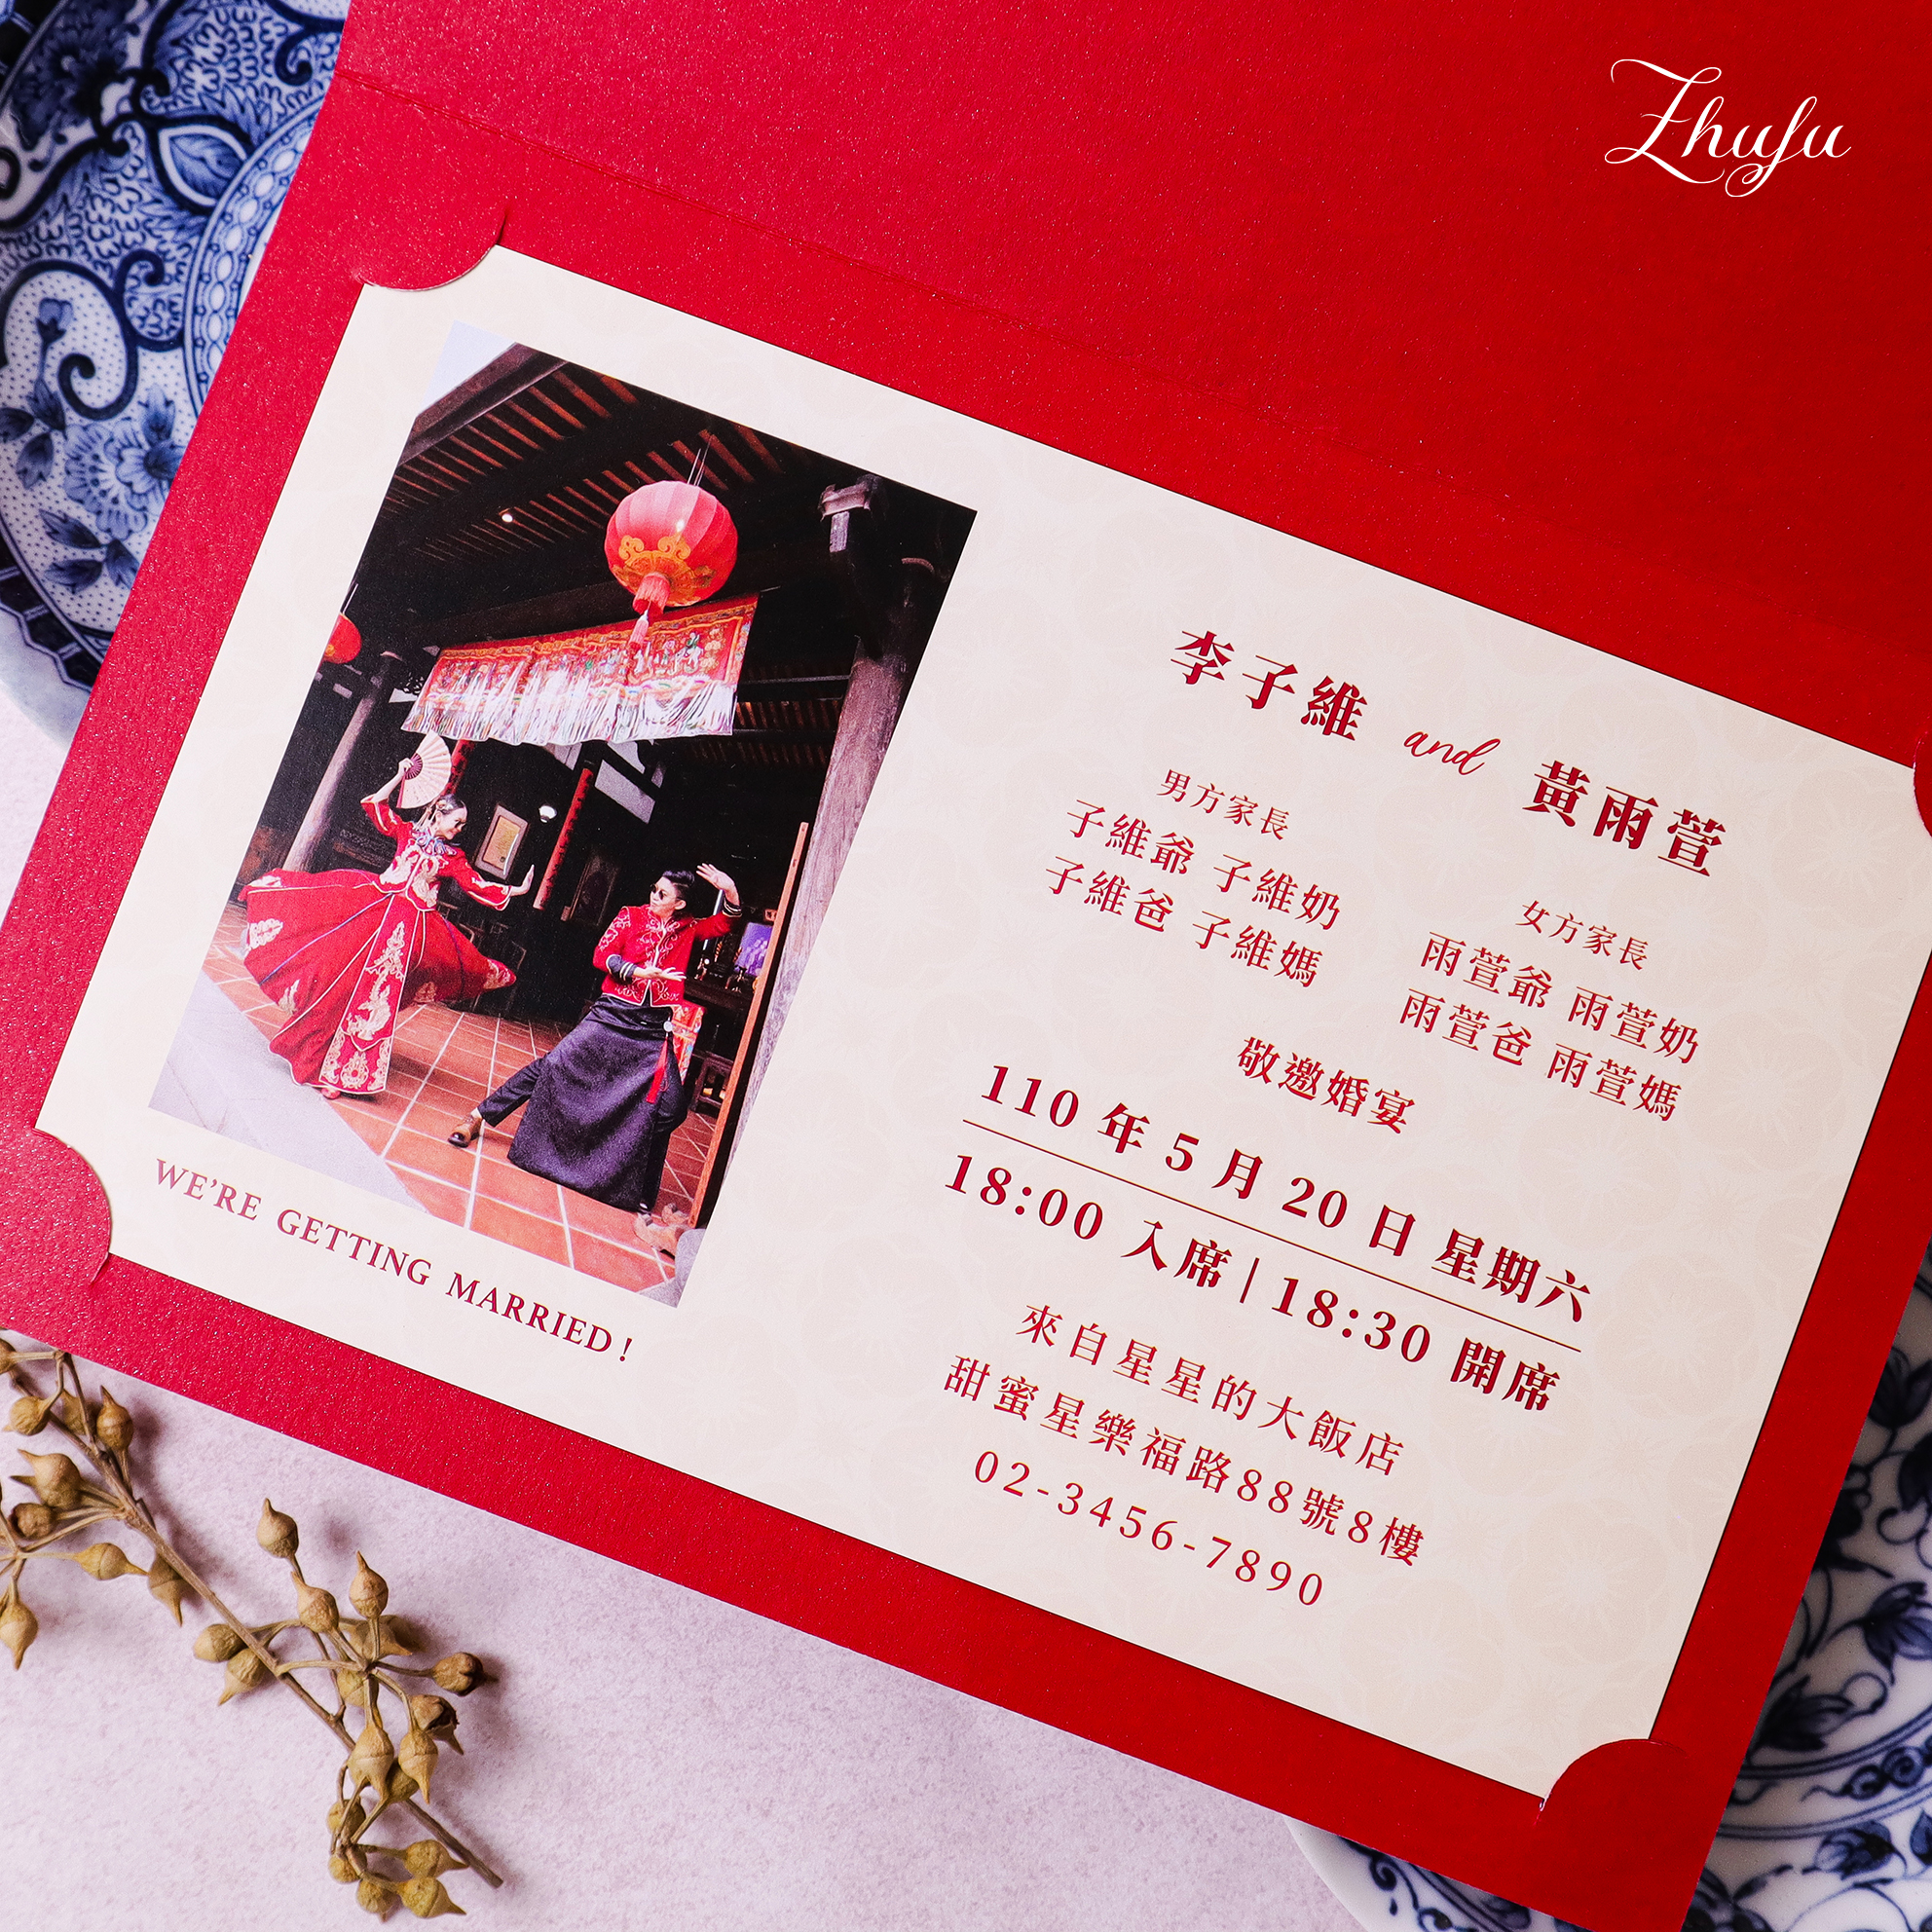 Zhufu
李子維 and 黃雨萱
男方家長
子維爺 子維奶
子維爸 子維媽
女方家長
雨萱爺 雨萱奶
雨萱爸 雨萱媽
敬邀婚宴
110 年 5 月 20 日 星期六
18:00 入席 | 18:30 開席
來自星星的大飯店
甜蜜星樂福路88號8樓
02-3456-7890
WE'RE GETTING MARRIED!